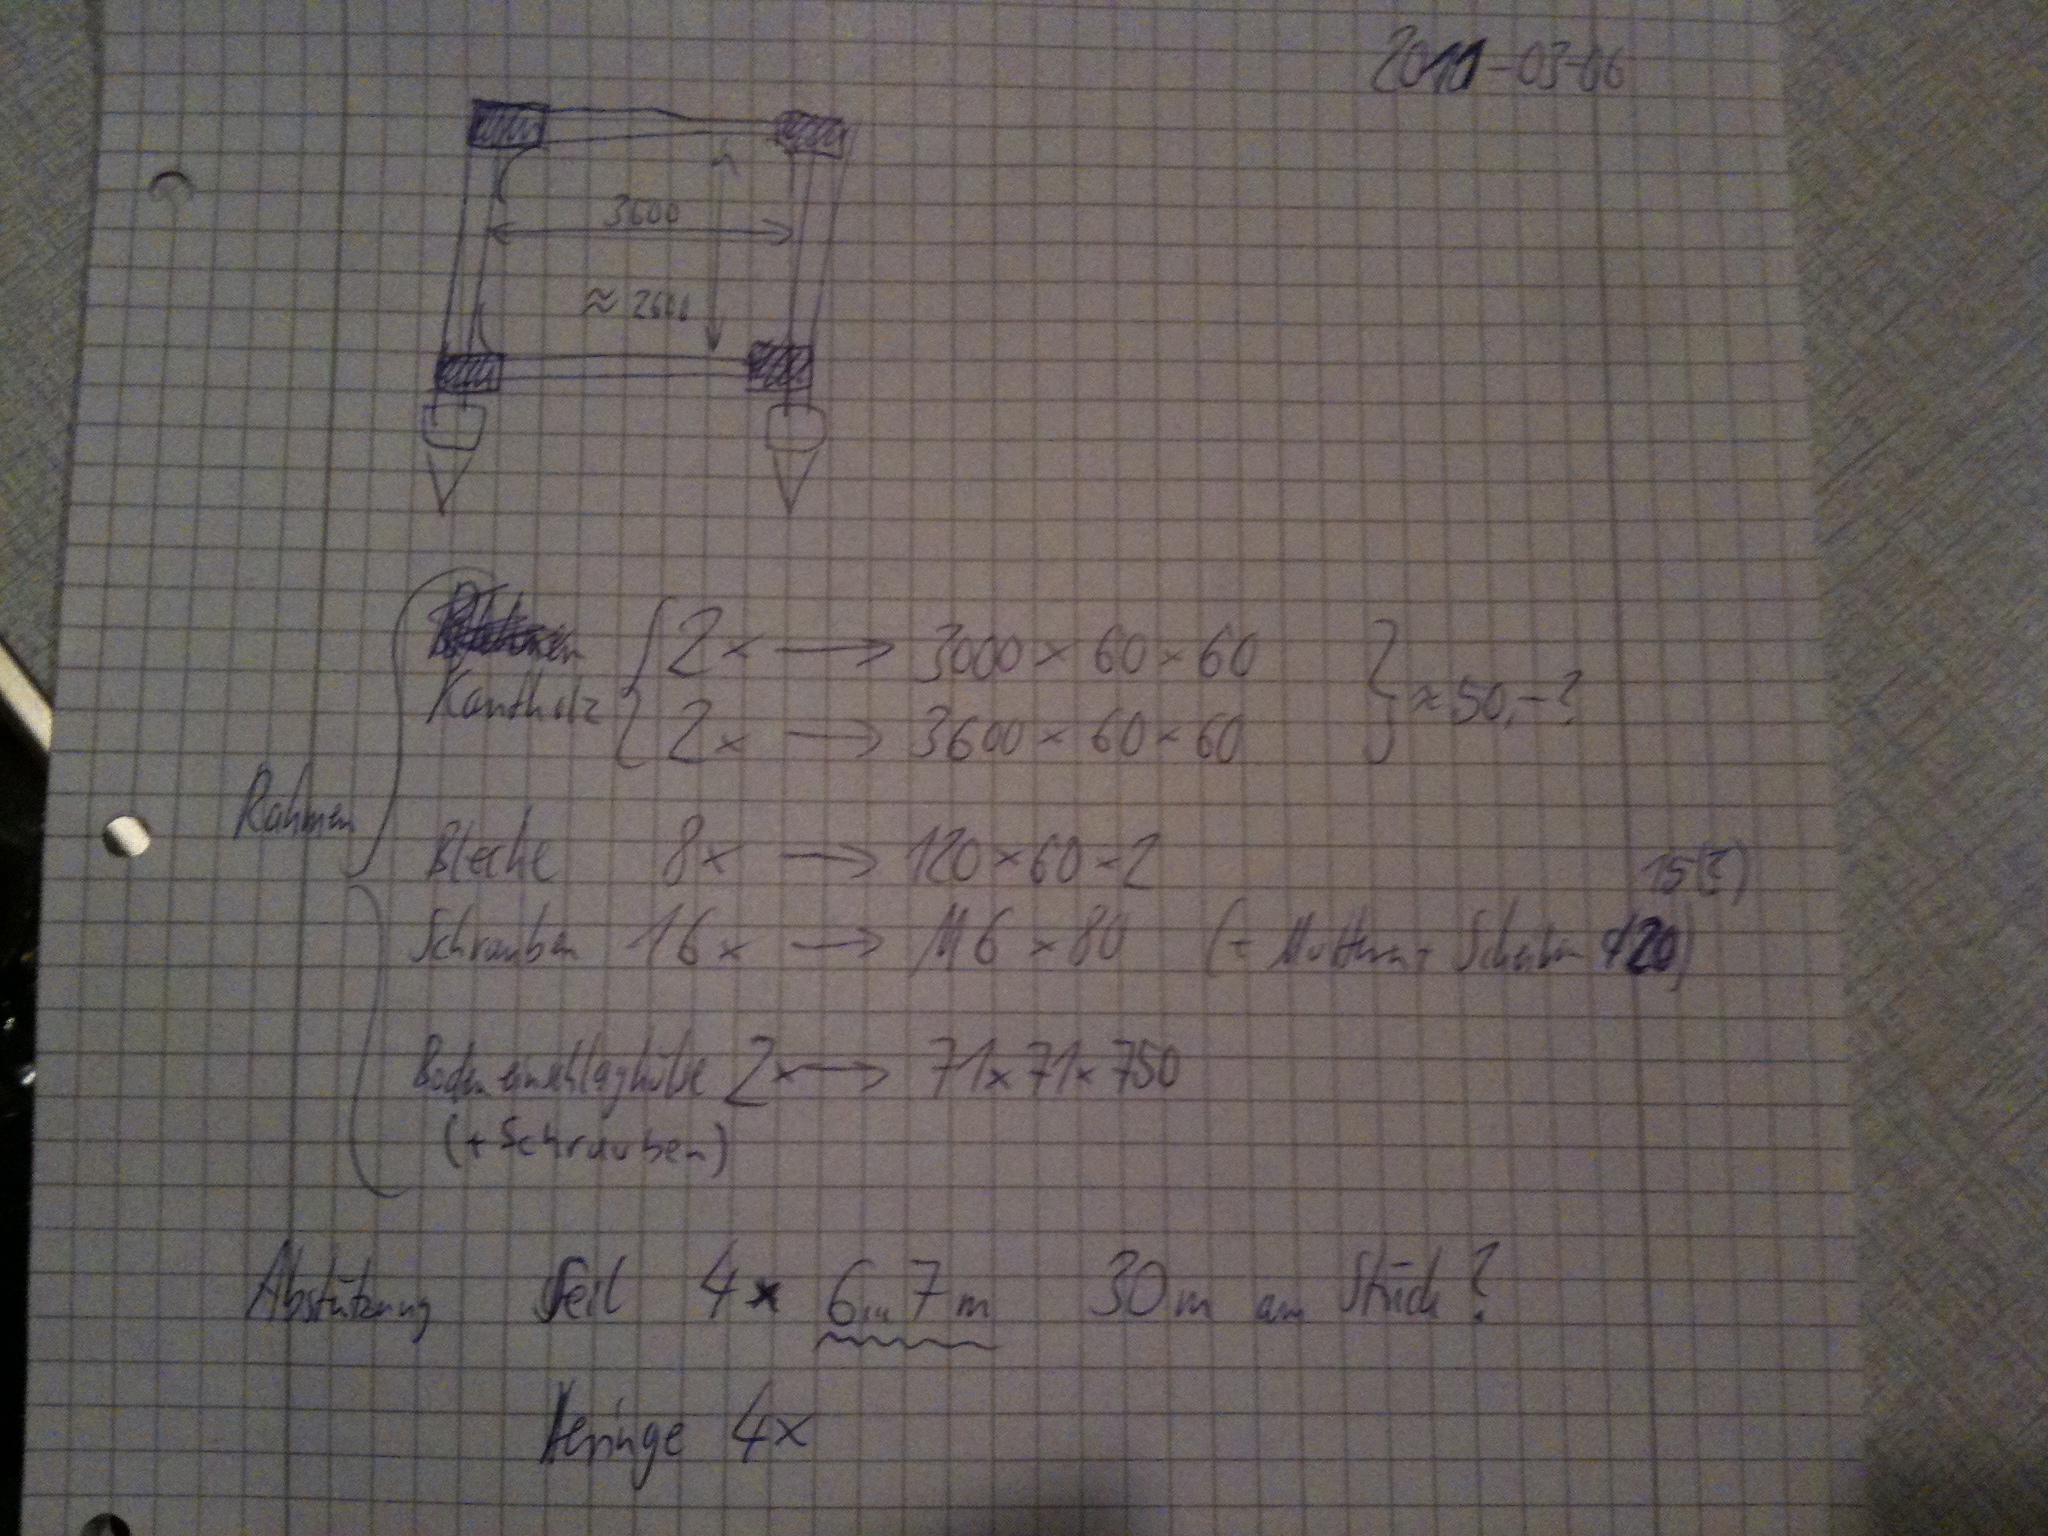 2011-03-06
3600
≈ 2600
Kantholz
2x → 3000 × 60 × 60
2x → 3600 × 60 × 60
≈ 50,-?
Rahmen
Bleche 8x → 120 × 60 × 2
15(?)
Schrauben 16x → M6 × 80 (+ Muttern + Scheiben 20)
Bodeneinschlaghülse 2x → 71 x 71 x 750
(+ Schrauben)
Abstützung Seil 4x 6...7m 30m am Stück?
Heringe 4x